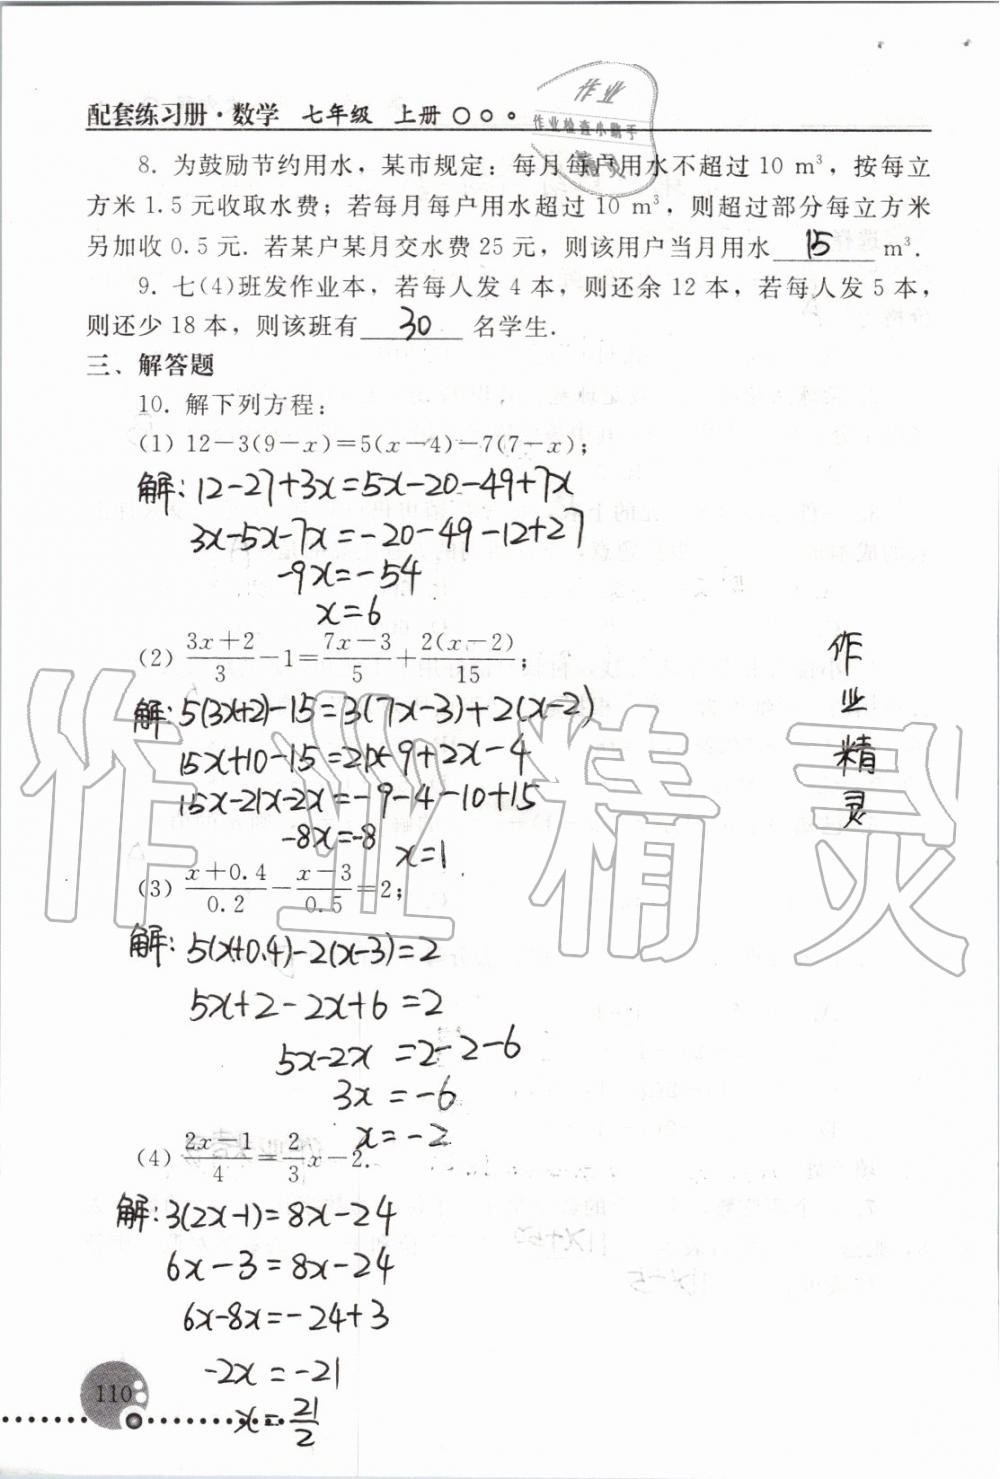 配套练习册·数学 七年级 上册
作业
作业检查小助手
8. 为鼓励节约用水，某市规定：每月每户用水不超过 10 m³，按每立
方米 1.5 元收取水费；若每月每户用水超过 10 m³，则超过部分每立方米
另加收 0.5 元. 若某户某月交水费 25 元，则该用户当月用水 15 m³.
9. 七(4)班发作业本，若每人发 4 本，则还余 12 本，若每人发 5 本，
则还少 18 本，则该班有 30 名学生.
三、解答题
10. 解下列方程：
(1) 12-3(9-x)=5(x-4)-7(7-x);
解: 12-27+3x=5x-20-49+7x
3x-5x-7x=-20-49-12+27
-9x=-54
x=6
(2) (3x+2)/3-1=(7x-3)/5+2(x-2)/15;
解: 5(3x+2)-15=3(7x-3)+2(x-2)
15x+10-15=21x-9+2x-4
15x-21x-2x=-9-4-10+15
-8x=-8
x=1
(3) (x+0.4)/0.2-(x-3)/0.5=2;
解: 5(x+0.4)-2(x-3)=2
5x+2-2x+6=2
5x-2x=2-2-6
3x=-6
x=-2
(4) (2x-1)/4=2/3x-2.
解: 3(2x-1)=8x-24
6x-3=8x-24
6x-8x=-24+3
-2x=-21
x=21/2
作
业
精
灵
作业精灵
110